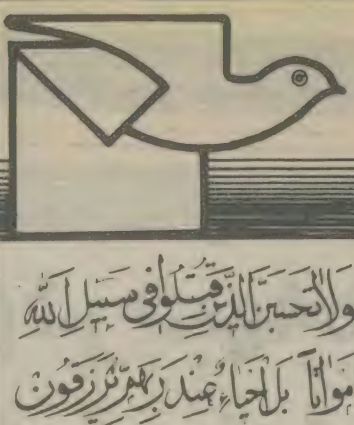 وَلَا تَحْسَبَنَّ الَّذِينَ قُتِلُوا فِي سَبِيلِ اللَّهِ
مْوَاتًا بَلْ أَحْيَاءٌ عِنْدَ رَبِّهِمْ يُرْزَقُونَ